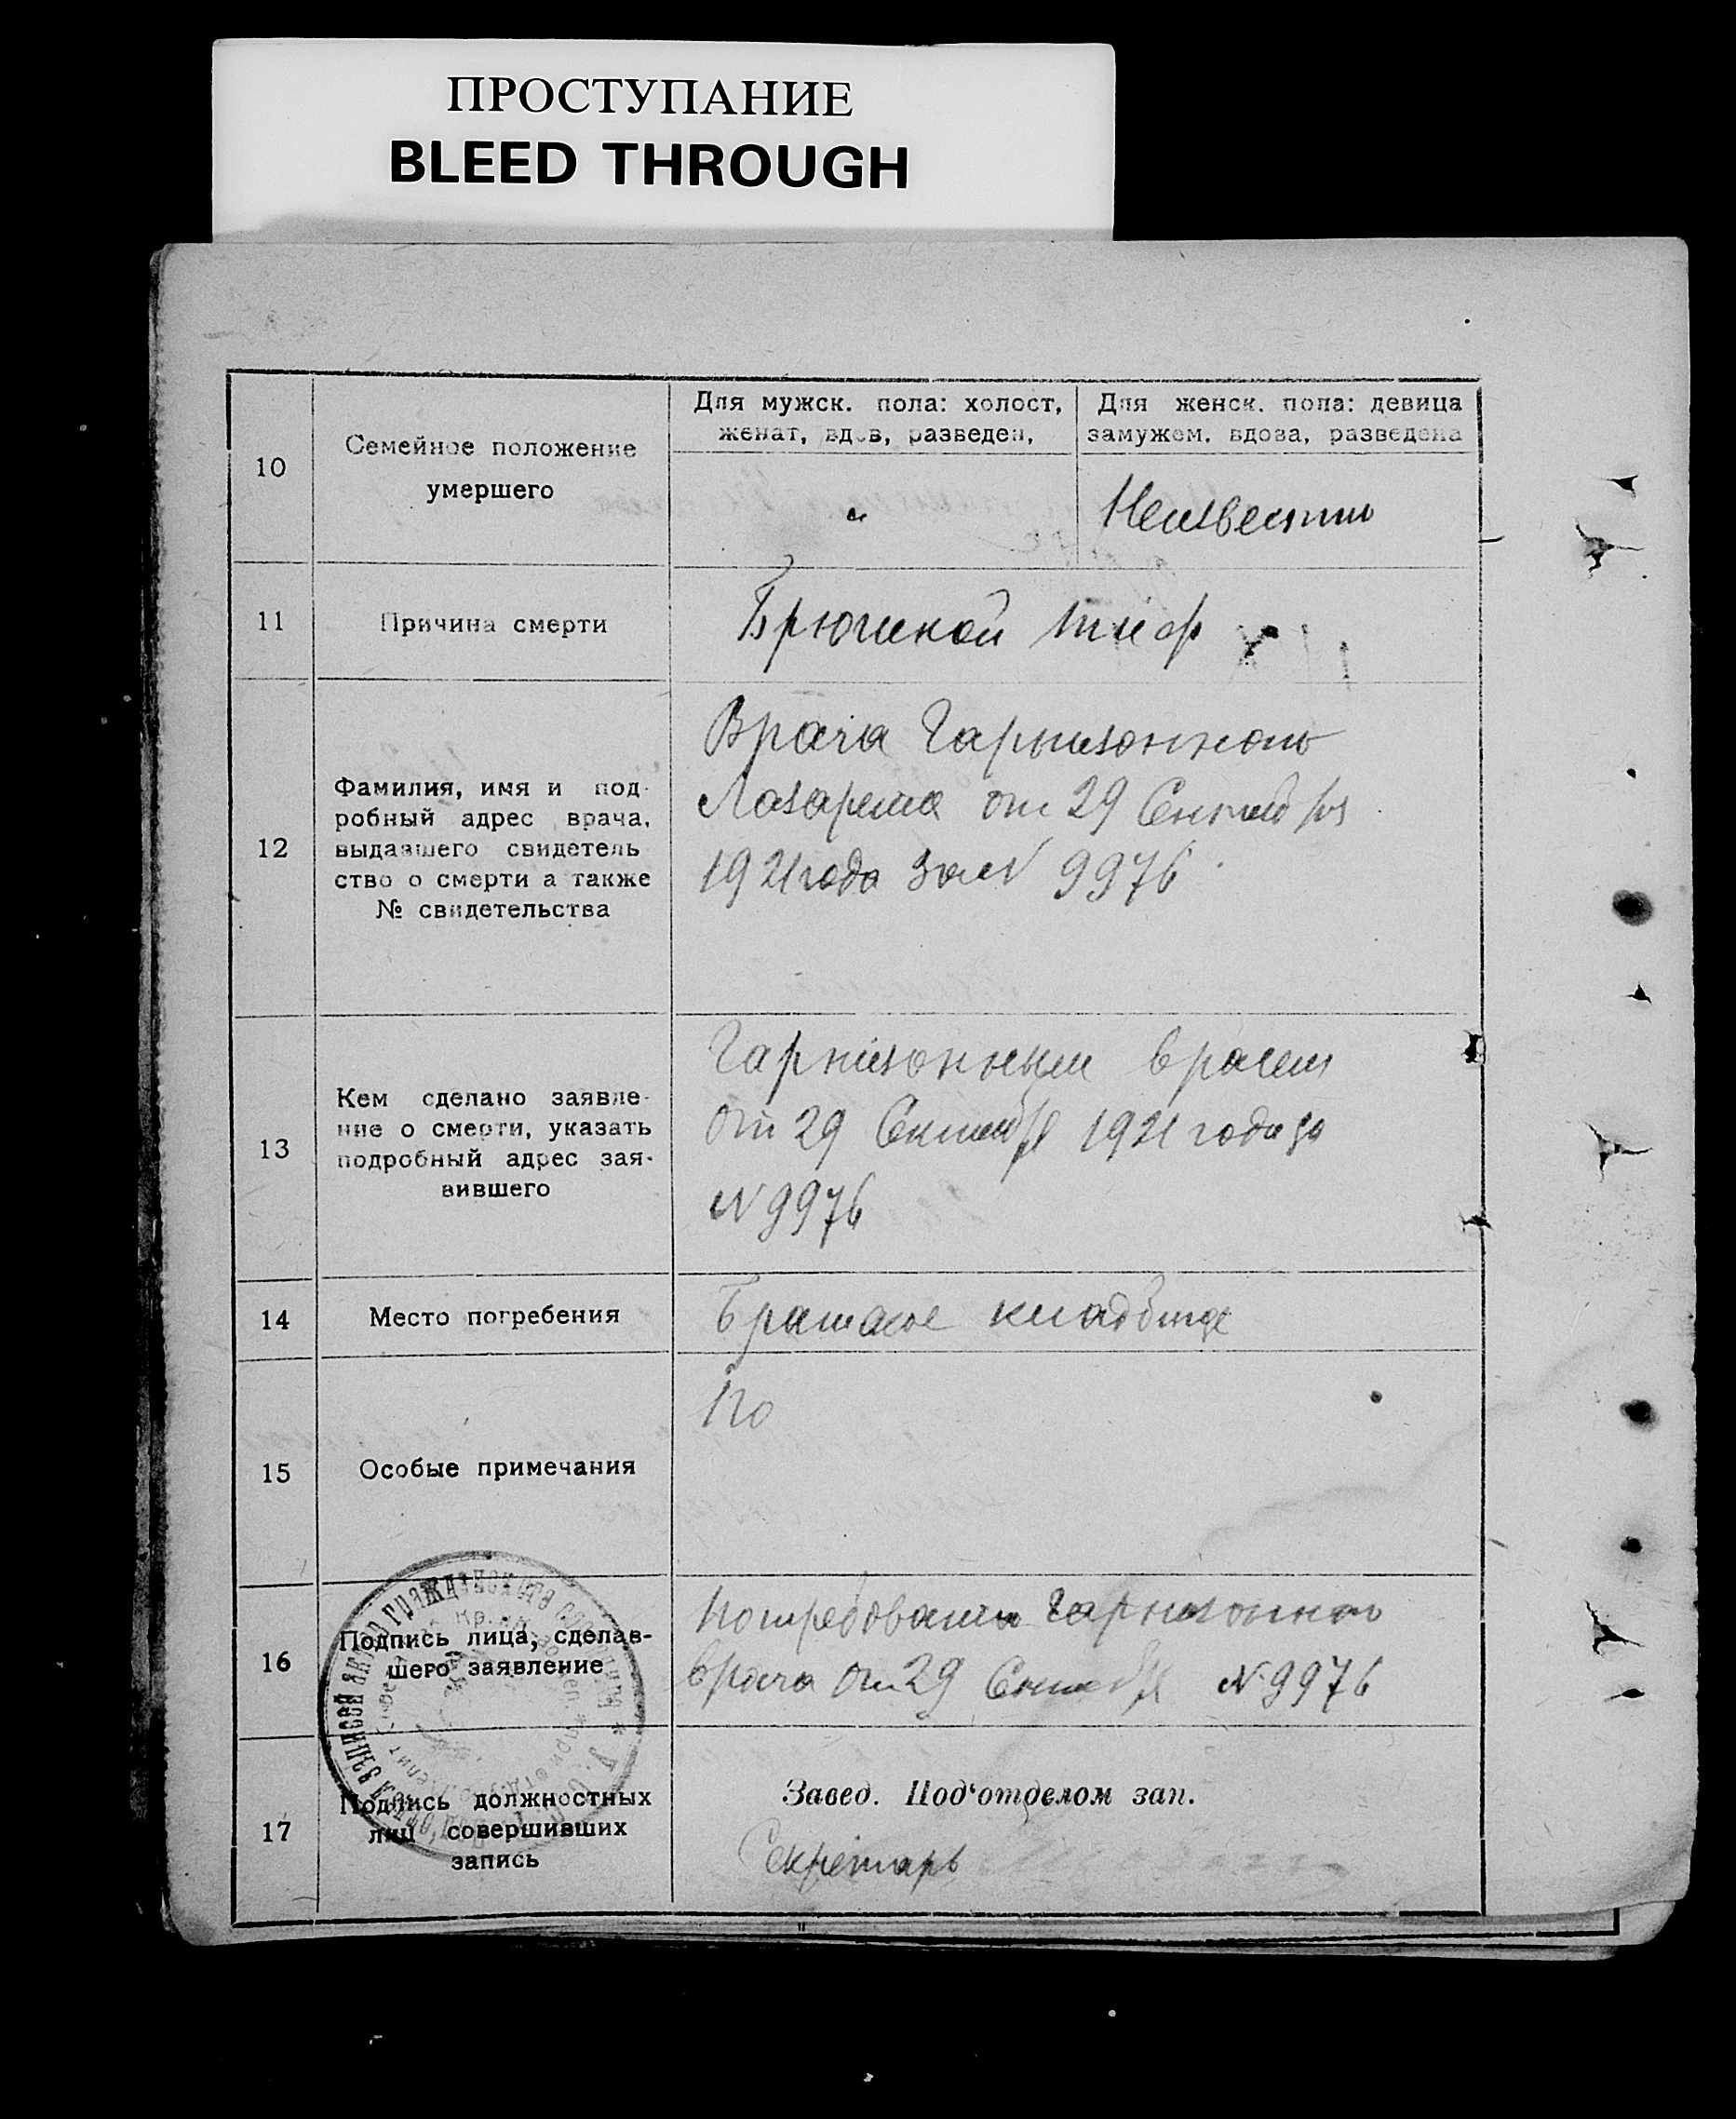 ПРОСТУПАНИЕ
BLEED THROUGH
10
Семейное положение
умершего
Для мужск. пола: холост,
женат, вдов, разведен,
Для женск. пола: девица
замужем. вдова, разведена
"
Неизвестно
11
Причина смерти
Брюшной тиф
12
Фамилия, имя и под-
робный адрес врача,
выдавшего свидетель
ство о смерти а также
№ свидетельства
Врача Гарнизонного
Лазарета от 29 Сентября
1921 года за N 9976
13
Кем сделано заявле-
ние о смерти, указать
подробный адрес зая-
вившего
Гарнизонным врачем
от 29 Сентября 1921 года за
N 9976
14
Место погребения
Братское кладбище
15
Особые примечания
По
16
Подпись лица, сделав-
шего заявление
врача от 29 N 9976
17
Подпись должностных
лиц совершивших
запись
Завед. Под'отделом зап.
Секретарь